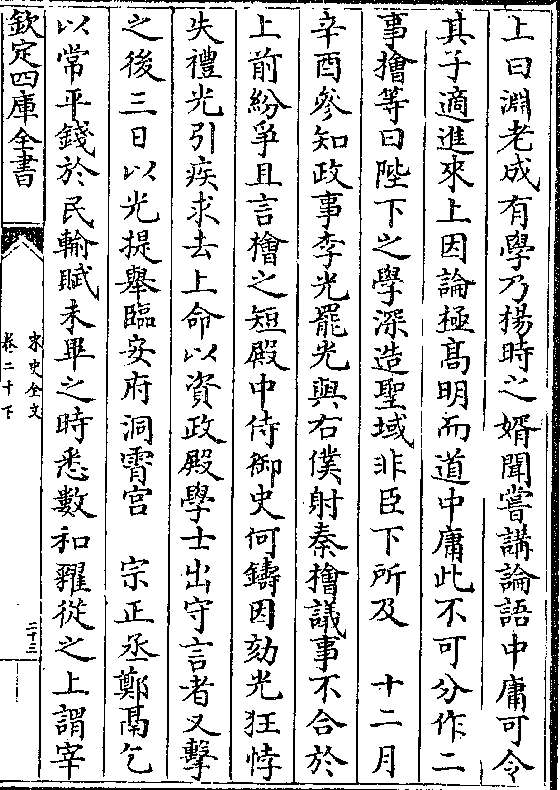 上曰淵老成有學乃楊時之婿聞嘗講論語中庸可令
其子適進來上因論極高明而道中庸此不可分作二
事檜等曰陛下之學深造聖域非臣下所及　十二月
辛酉參知政事李光罷光與右僕射秦檜議事不合於
上前紛爭且言檜之短殿中侍御史何鑄因劾光狂悖
失禮光引疾求去上命以資政殿學士出守言者又擊
之後三日以光提舉臨安府洞霄宮　宗正丞鄭鬲乞
以常平錢於民輸賦未畢之時悉數和糴從之上謂宰
欽定四庫全書
宋史全文
卷二十下
二十三